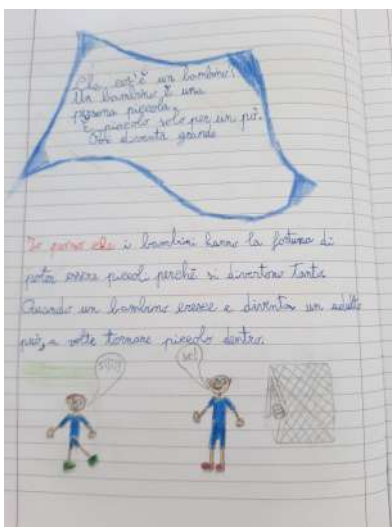 Che cos'è un bambino?
Un bambino è una
persona piccola,
è piccolo solo per un pò.
Poi diventa grande
Io penso che i bambini hanno la fortuna di
poter essere piccoli perché si divertono tanto.
Quando un bambino cresce e diventa un adulto
può, a volte tornare piccolo dentro.